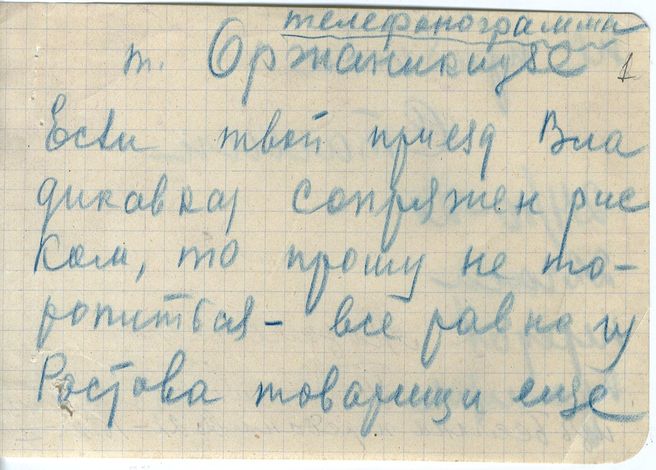 телефонограмма
т. Оржаникидзе
1
Если твой приезд Вла
дикавказ сопряжен рис
ком, то прошу не то-
ропиться - все равно из
Ростова товарищи еще